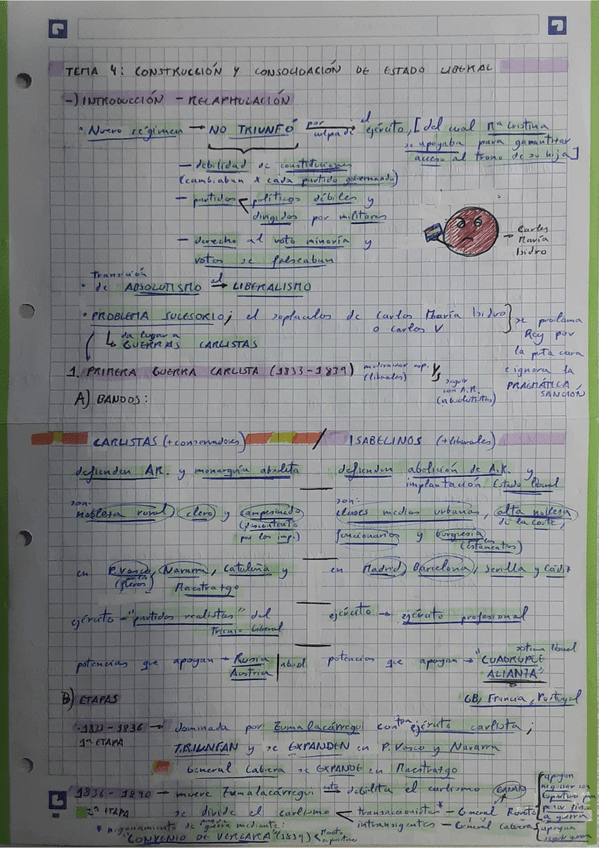 TEMA 4: CONSTRUCCIÓN Y CONSOLIDACIÓN DE ESTADO LIBERAL
-) INTRODUCCIÓN - RECAPITULACIÓN
• Nuevo régimen → NO TRIUNFÓ por culpa de → el ejército, [del cual Mª Cristina
se apoyaba para garantizar
acceso al trono de su hija]
- debilidad de constituciones
(cambiaban x cada partido gobernando)
- partidos < políticos débiles y
dirigidos por militares
- derecho al voto minoría y
votos se falseaban
Carlos
María
Isidro
• Transición
de ABSOLUTISMO al → LIBERALISMO
• PROBLEMA SUCESORIO; el de Carlos María Isidro
o Carlos V
se proclama
Rey por
la cara
e ignora la
PRAGMÁTICA
SANCIÓN
↳ da lugar a
GUERRAS CARLISTAS
1. PRIMERA GUERRA CARLISTA (1833-1839)
modernizar esp.
(liberales)
seguir
con A.R.
(absolutistas)
A) BANDOS:
CARLISTAS (+conservadores) / ISABELINOS (+liberales)
defienden AR. y monarquía absoluta
defienden abolición de A.R. y
implantación Estado liberal
son:
nobleza rural, clero y campesinado
son:
clases medias urbanas, alta nobleza
de la corte,
funcionarios y burguesía
en P. Vasco, Navarra, Cataluña y
(fueros) Maestrazgo
en Madrid, Barcelona, Sevilla y Cádiz
ejército - "partidos realistas" del
Trienio Liberal
ejército → ejército profesional
potencias que apoyan → Rusia
Austria
potencias que apoyan → "CUÁDRUPLE
ALIANZA"
GB, Francia, Portugal
B) ETAPAS
• 1833 - 1836 → dominada por Zumalacárregui con ejército carlista;
1ª ETAPA
TRIUNFAN y se EXPANDEN en P. Vasco y Navarra
General Cabrera se EXPANDE en Maestrazgo
1836 - 1840 - muere Zumalacárregui debilita el carlismo
2ª ETAPA
se divide el carlismo < transaccionistas* - General Maroto
intransigentes - General Cabrera
apoyan
negociar con
para
la guerra
apoyan
seguir guerra
mediante:
"CONVENIO DE VERGARA" (1839) < Maroto